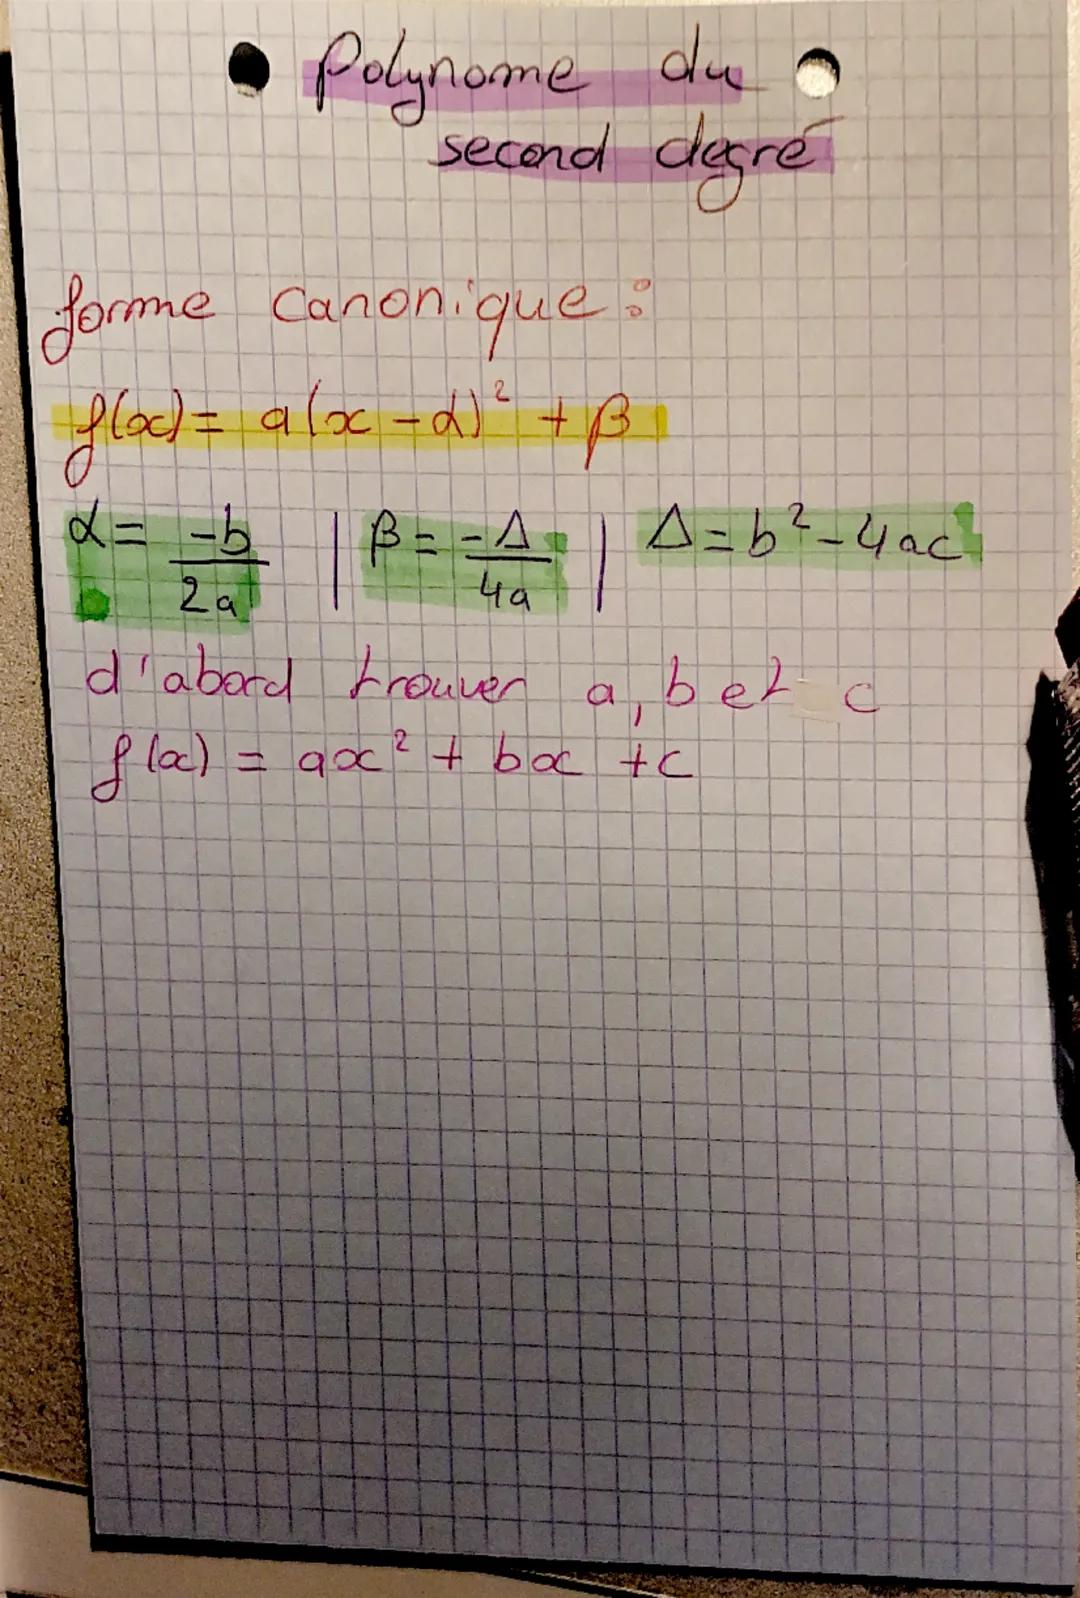 Polynome du
second degré
forme canonique :
f(x) = a(x - α)² + β
α = -b/2a | β = -Δ/4a | Δ = b² - 4ac
d'abord trouver a, b et c
f(x) = ax² + bx + c